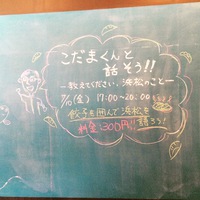 こだまくんと
話そう!!
ー教えてください、浜松のことー
7/10(金) 17:00〜20:00
餃子を囲んで浜松を
料金300円!! 語ろう!